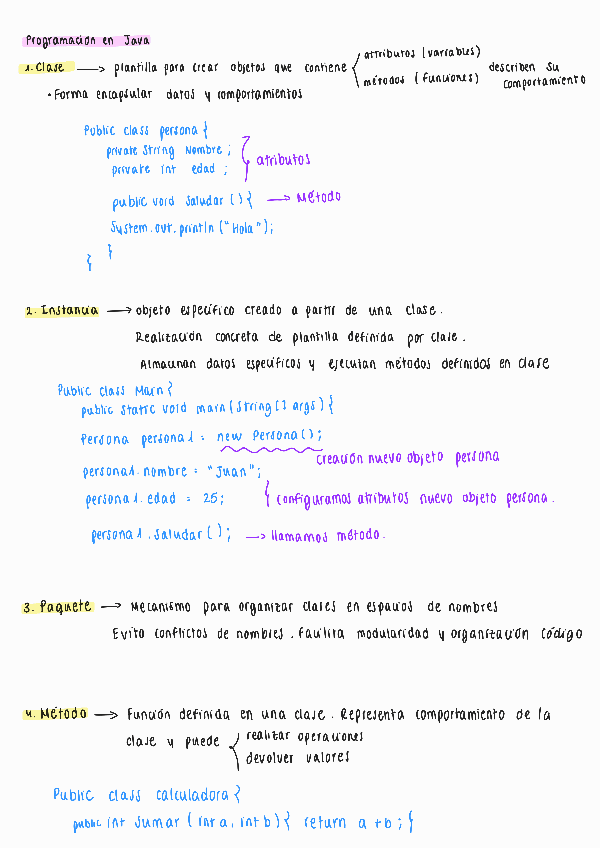 Programación en Java
1. Clase → plantilla para crear objetos que contiene { atributos (variables) métodos (funciones) describen su comportamiento
• Forma encapsular datos y comportamientos
Public class persona {
private String Nombre;
private int edad; } atributos
public void saludar () { → Método
System.out.println ("Hola");
}
}
2. Instancia → objeto específico creado a partir de una clase.
Realización concreta de plantilla definida por clase.
Almacenan datos específicos y ejecutan métodos definidos en clase
Public class Main {
public static void main (String [] args) {
Persona persona1 = new Persona ();
Creación nuevo objeto persona
persona1.nombre = "Juan";
persona1.edad = 25; { configuramos atributos nuevo objeto persona.
persona1.saludar (); → llamamos método.
3. Paquete → Mecanismo para organizar clases en espacios de nombres
Evito conflictos de nombres. Facilita modularidad y organización código
4. Método → Función definida en una clase. Representa comportamiento de la
clase y puede { realizar operaciones
devolver valores
Public class calculadora {
public int sumar (int a, int b) { return a + b; {